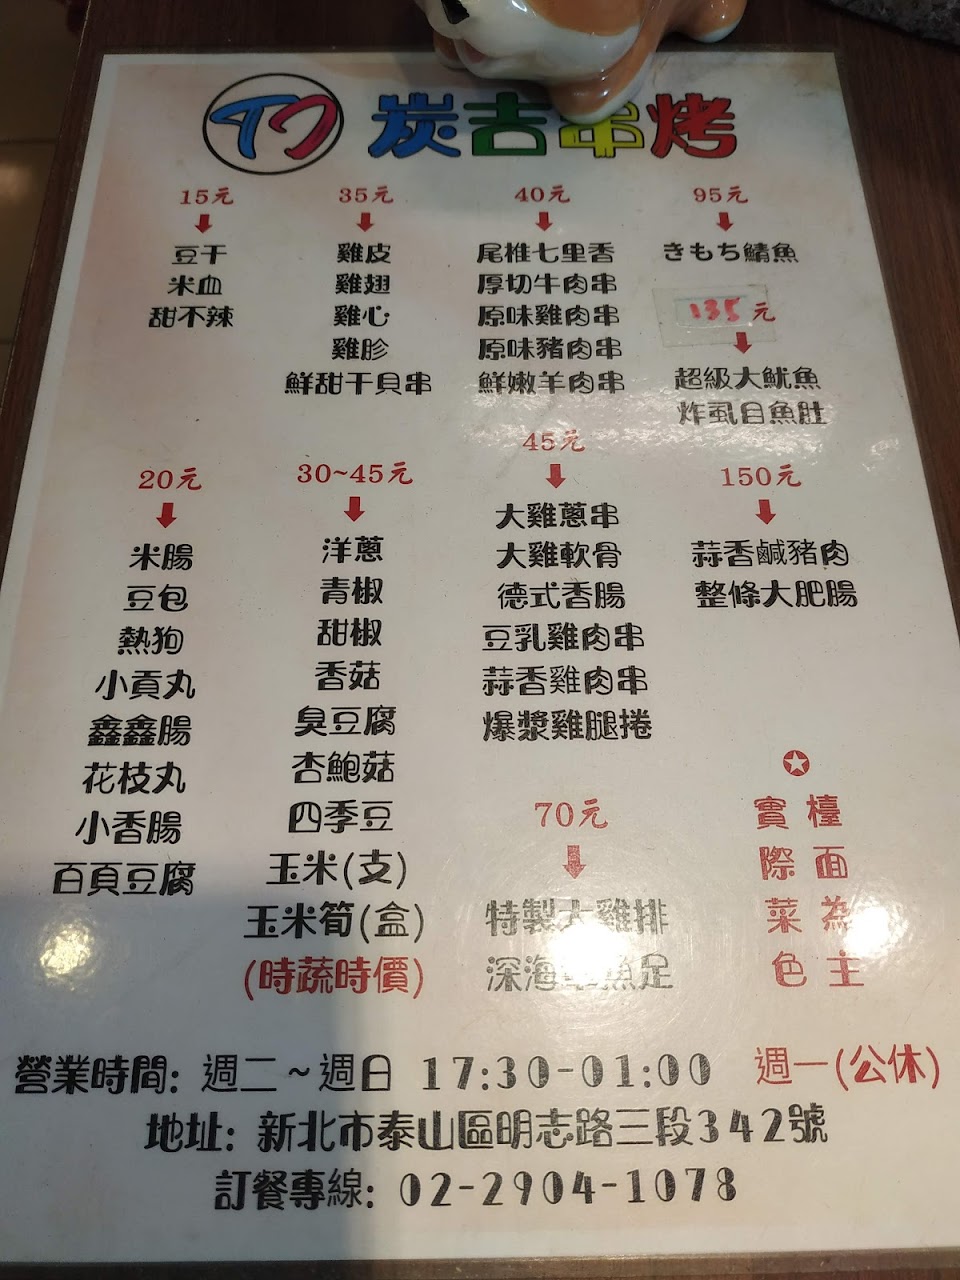 炭吉串烤
15元
豆干
米血
甜不辣
35元
雞皮
雞翅
雞心
雞胗
鮮甜干貝串
40元
尾椎七里香
厚切牛肉串
原味雞肉串
原味豬肉串
鮮嫩羊肉串
95元
きもち鯖魚
135元
超級大魷魚
炸虱目魚肚
20元
米腸
豆包
熱狗
小貢丸
鑫鑫腸
花枝丸
小香腸
百頁豆腐
30~45元
洋蔥
青椒
甜椒
香菇
臭豆腐
杏鮑菇
四季豆
玉米(支)
玉米筍(盒)
(時蔬時價)
45元
大雞蔥串
大雞軟骨
德式香腸
豆乳雞肉串
蒜香雞肉串
爆漿雞腿捲
70元
特製大雞排
深海章魚足
150元
蒜香鹹豬肉
整條大肥腸
檯面為主
實際菜色
營業時間: 週二~週日 17:30-01:00 週一(公休)
地址: 新北市泰山區明志路三段342號
訂餐專線: 02-2904-1078